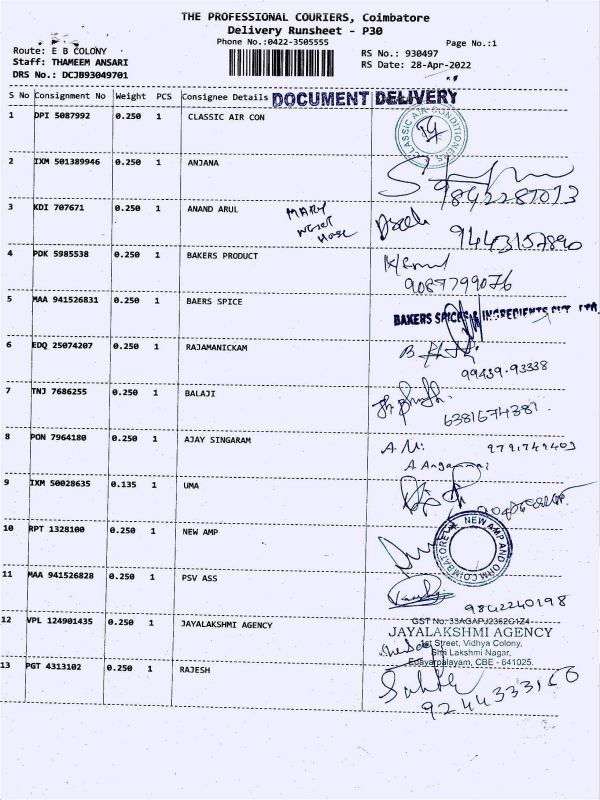 THE PROFESSIONAL COURIERS, Coimbatore
Delivery Runsheet - P30
Phone No.:0422-3505555
Page No.:1
Route: E B COLONY
Staff: THAMEEM ANSARI
DRS No.: DCJB93049701
RS No.: 930497
RS Date: 28-Apr-2022
S No Consignment No Weight PCS Consignee Details DOCUMENT DELIVERY
1 DPI 5087992 0.250 1 CLASSIC AIR CON
CLASSIC AIR CONDITIONERS
2 IXM 501389946 0.250 1 ANJANA
9842281013
3 KDI 707671 0.250 1 ANAND ARUL
MARY
9443157890
4 PDK 5985538 0.250 1 BAKERS PRODUCT
9087799076
5 MAA 941526831 0.250 1 BAERS SPICE
BAKERS SPICES & INGREDIENTS PVT. LTD.
6 EDQ 25074207 0.250 1 RAJAMANICKAM
99439-93338
7 TNJ 7686255 0.250 1 BALAJI
6381674381.
8 PON 7964180 0.250 1 AJAY SINGARAM
A M: 9791749409
9 IXM 50028635 0.135 1 UMA
10 RPT 1328100 0.250 1 NEW AMP
NEW AMP AND OHM COIMBATORE
11 MAA 941526828 0.250 1 PSV ASS
9842240198
12 VPL 124901435 0.250 1 JAYALAKSHMI AGENCY
GST No: 33AGAPJ2362G1Z4
JAYALAKSHMI AGENCY
Street, Vidhya Colony,
Shri Lakshmi Nagar,
Edayarpalayam, CBE - 641025.
13 PGT 4313102 0.250 1 RAJESH
9244333160